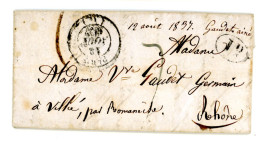 12 août 1837.
Madame
Madame Vve Gaudet Germain
à Villié, par Romanèche.
Rhône